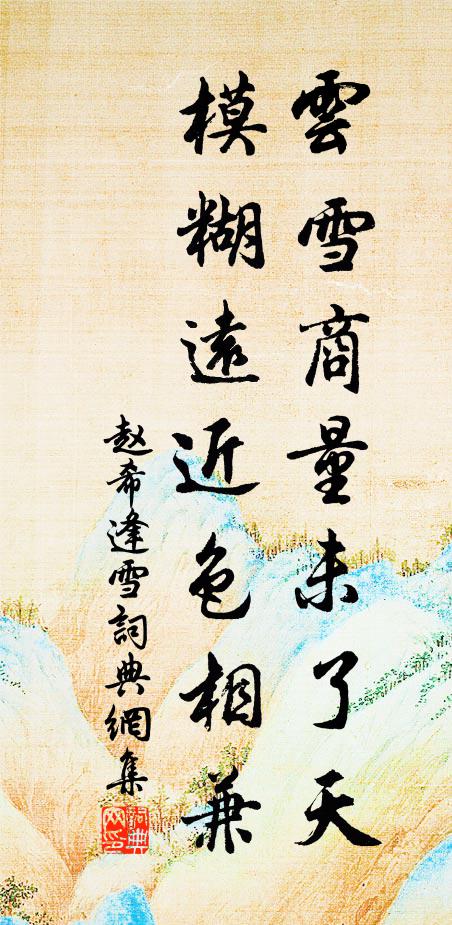 雲雪商量未了天
模糊遠近色相兼
赵希逢雪詞典網集
詞典
网印